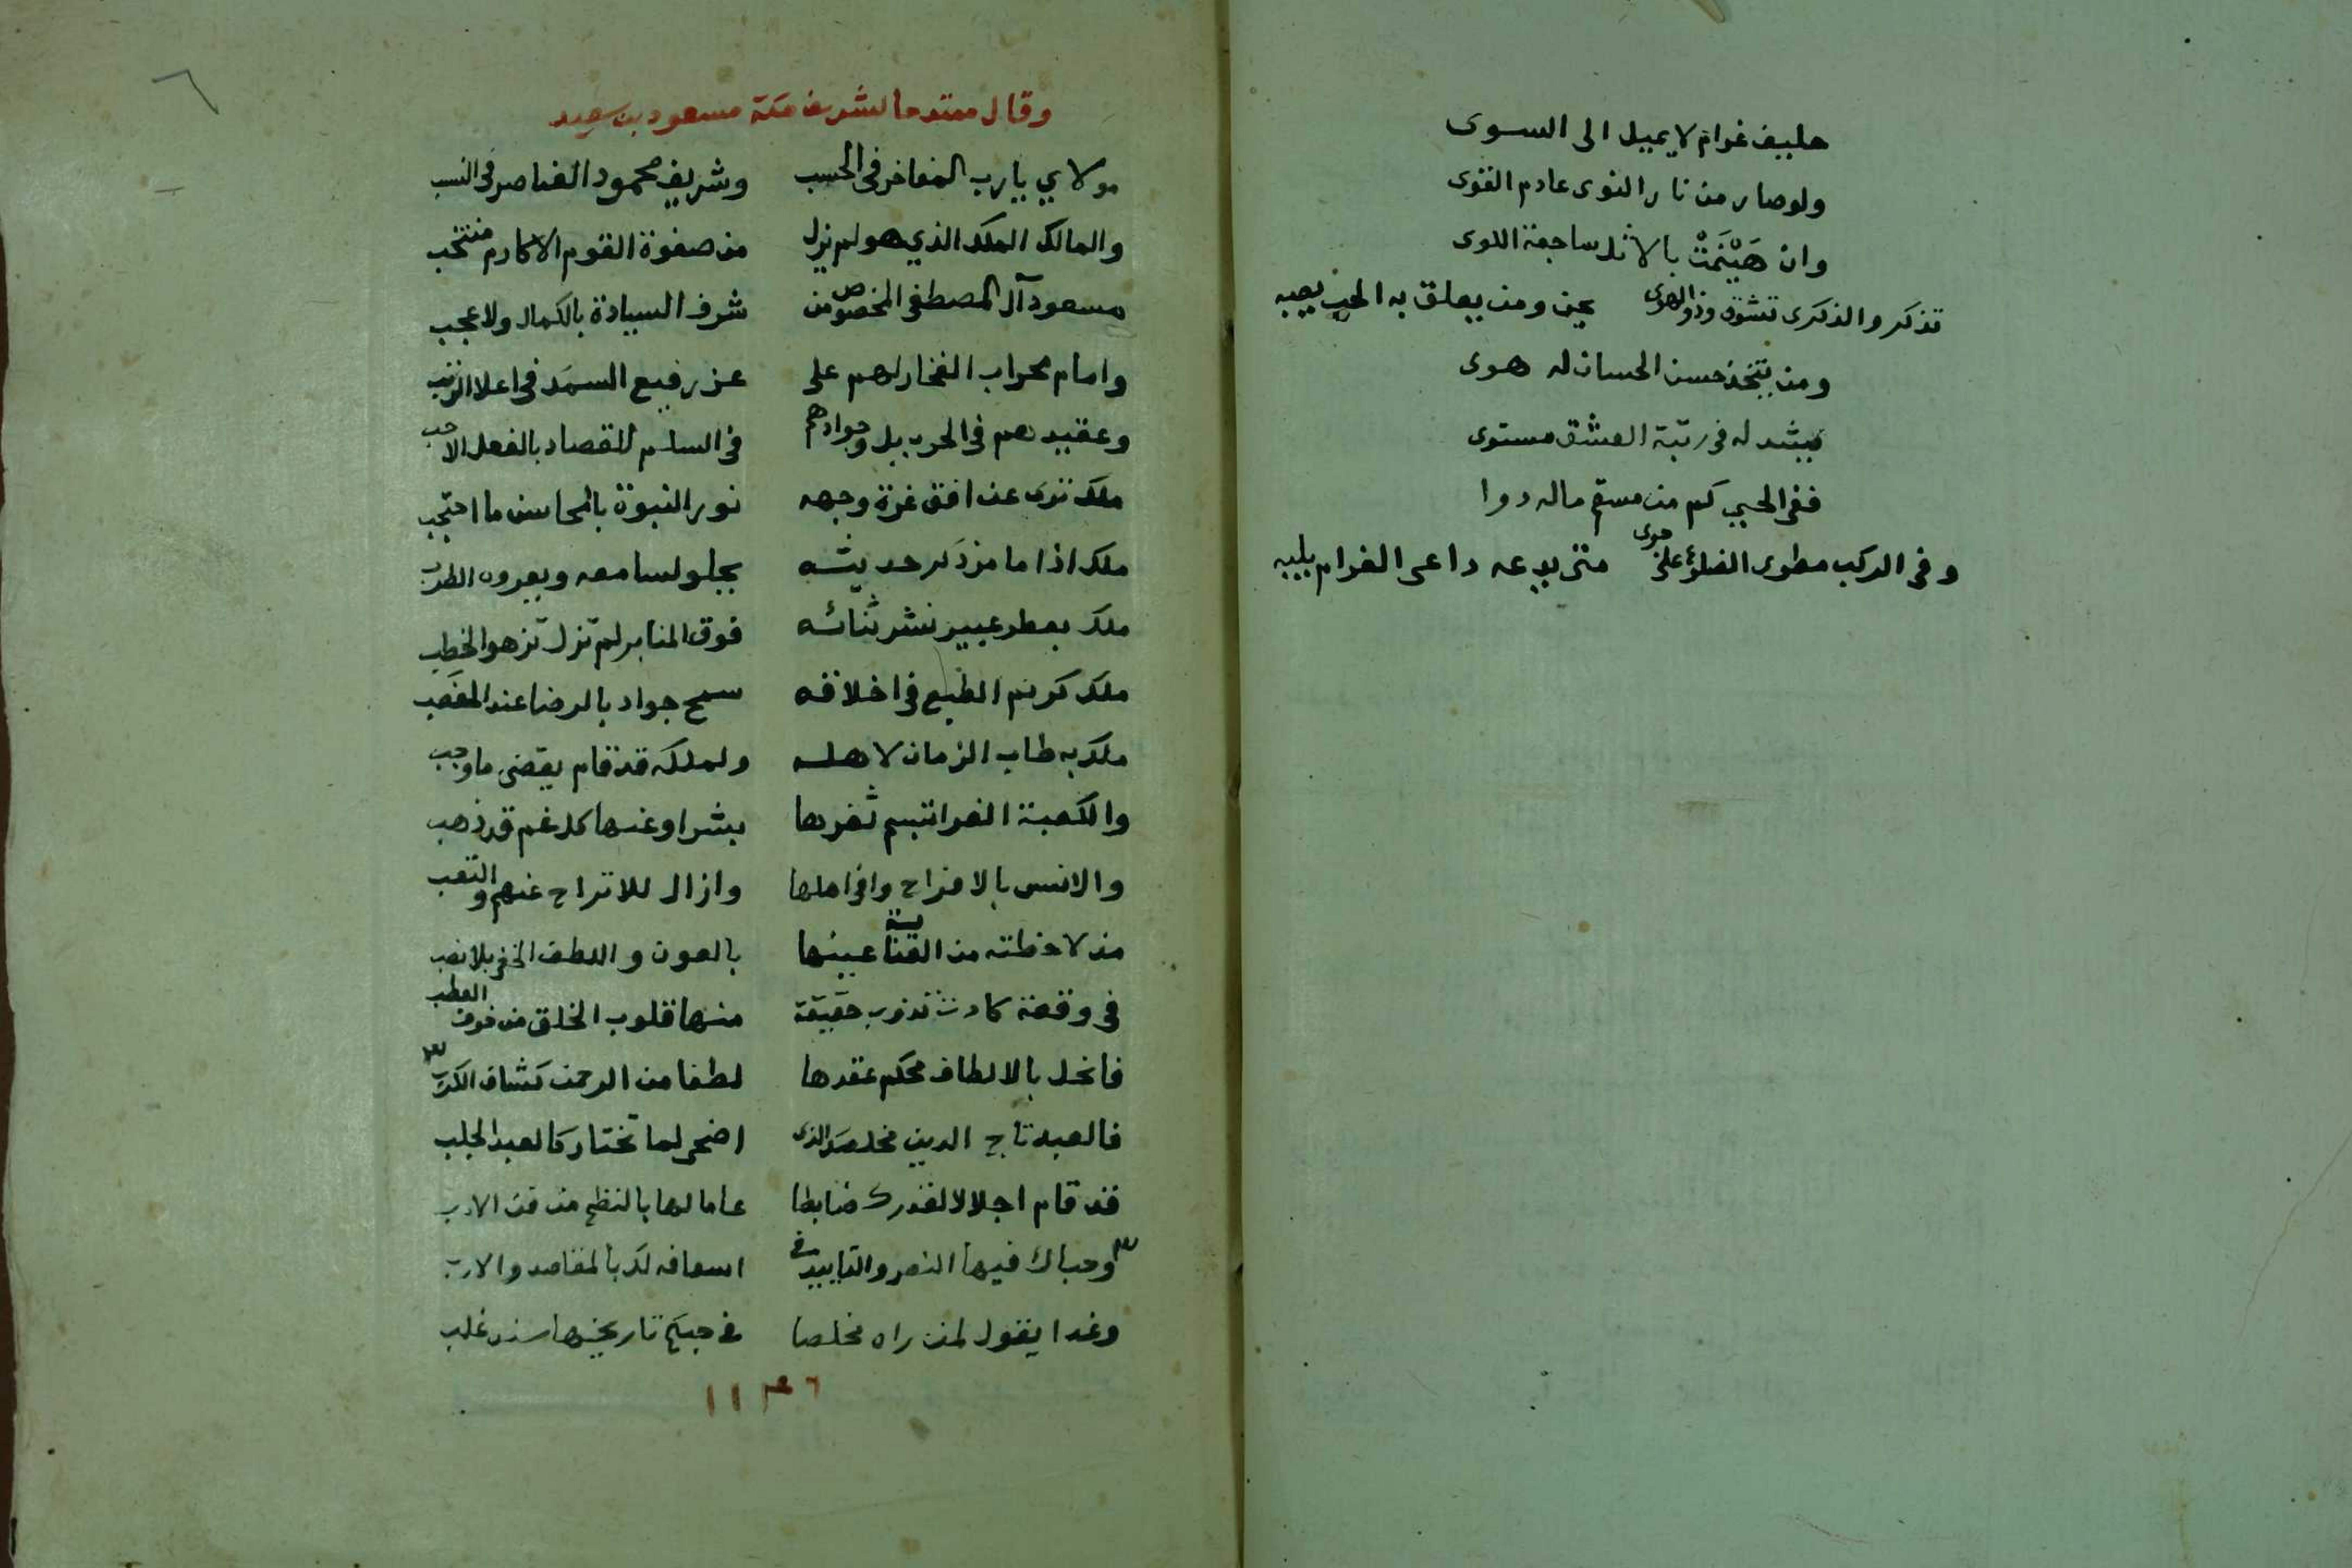 حليف غرام لا يميل الى السوى
ولو صار من نار النوى عادم القوى
وان هَيْنَمَتْ بالاثل ساجعة اللوى
تذكر والذكرى تشوق وذو الهوى يحن ومن يعلق به الحب يصبه
ومن يتخذ حسن الحسان له هوى
يشد له في رتبة العشق مستوى
ففي الحي كم من مسقم ماله دوا
وفي الركب مطوى الضلوع على جوى متى يدعه داعى الغرام يلبه
٦
وقال ممتدحا لشريف مكة مسعود بن سعيد
مولاي يا رب المفاخر في الحسب وشريف محمود العناصر في النسب
والمالك الملك الذي هو لم يزل من صفوة القوم الاكارم منتخب
مسعود آل المصطفى المخصوص من شرف السيادة بالكمال ولا عجب
وامام محراب الفخار لهم على عز رفيع السمك في اعلا الرتب
وعقيدهم في الحرب بل وجوادهم في السلم للقصاد بالفعل الاحب
ملك ترى عن افق غرة وجهه نور النبوة بالمحاسن ما احتجب
ملك اذا ما مر ذكر حديثه يحلو لسامعه ويعروه الطرب
ملك بعطر عبير نشر ثنائه فوق المنابر لم تزل تزهو الخطب
ملك كريم الطبع في اخلاقه سمح جواد بالرضا عند الغضب
ملك به طاب الزمان لاهله ولملكه قد قام يقضى ما وجب
والكعبة الغرا تبسم ثغرها بشرا وعنها كل غم قد ذهب
والانس بالافراح وافى اهلها وازال للاتراح عنهم والتعب
مذ لاحظته من العناية عينها بالعون واللطف الخفي بلا نصب
في وقعة كادت تذوب حقيقة منها قلوب الخلق من خوف العطب
فانحل بالالطاف محكم عقدها لطفا من الرحمن كشاف الكرب
فالعبد تاج الدين مخلصك الذى اضحى لما تختار كالعبد الجلب
قد قام اجلالا لقدرك ضابطا عاما لها بالنظم من فن الادب
وحباك فيها النصر والتاييد في اسعافه لك بالمقاصد والارب
وغدا يقول لمن راه مخلصا في جيم تاريخها سند غلب
١١٤٦